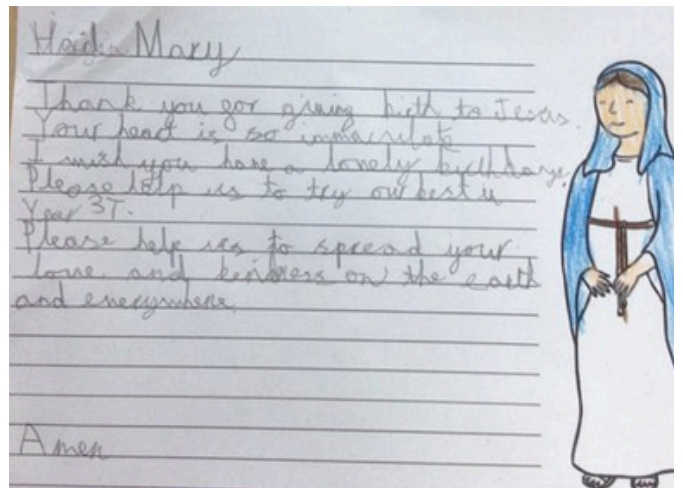 Hail Mary
Thank you for giving birth to Jesus.
Your heart is so immaculate
I wish you have a lovely birthday.
Please help us to try our best in
Year 3T.
Please help us to spread your
love and kindness on the earth
and everywhere.
Amen